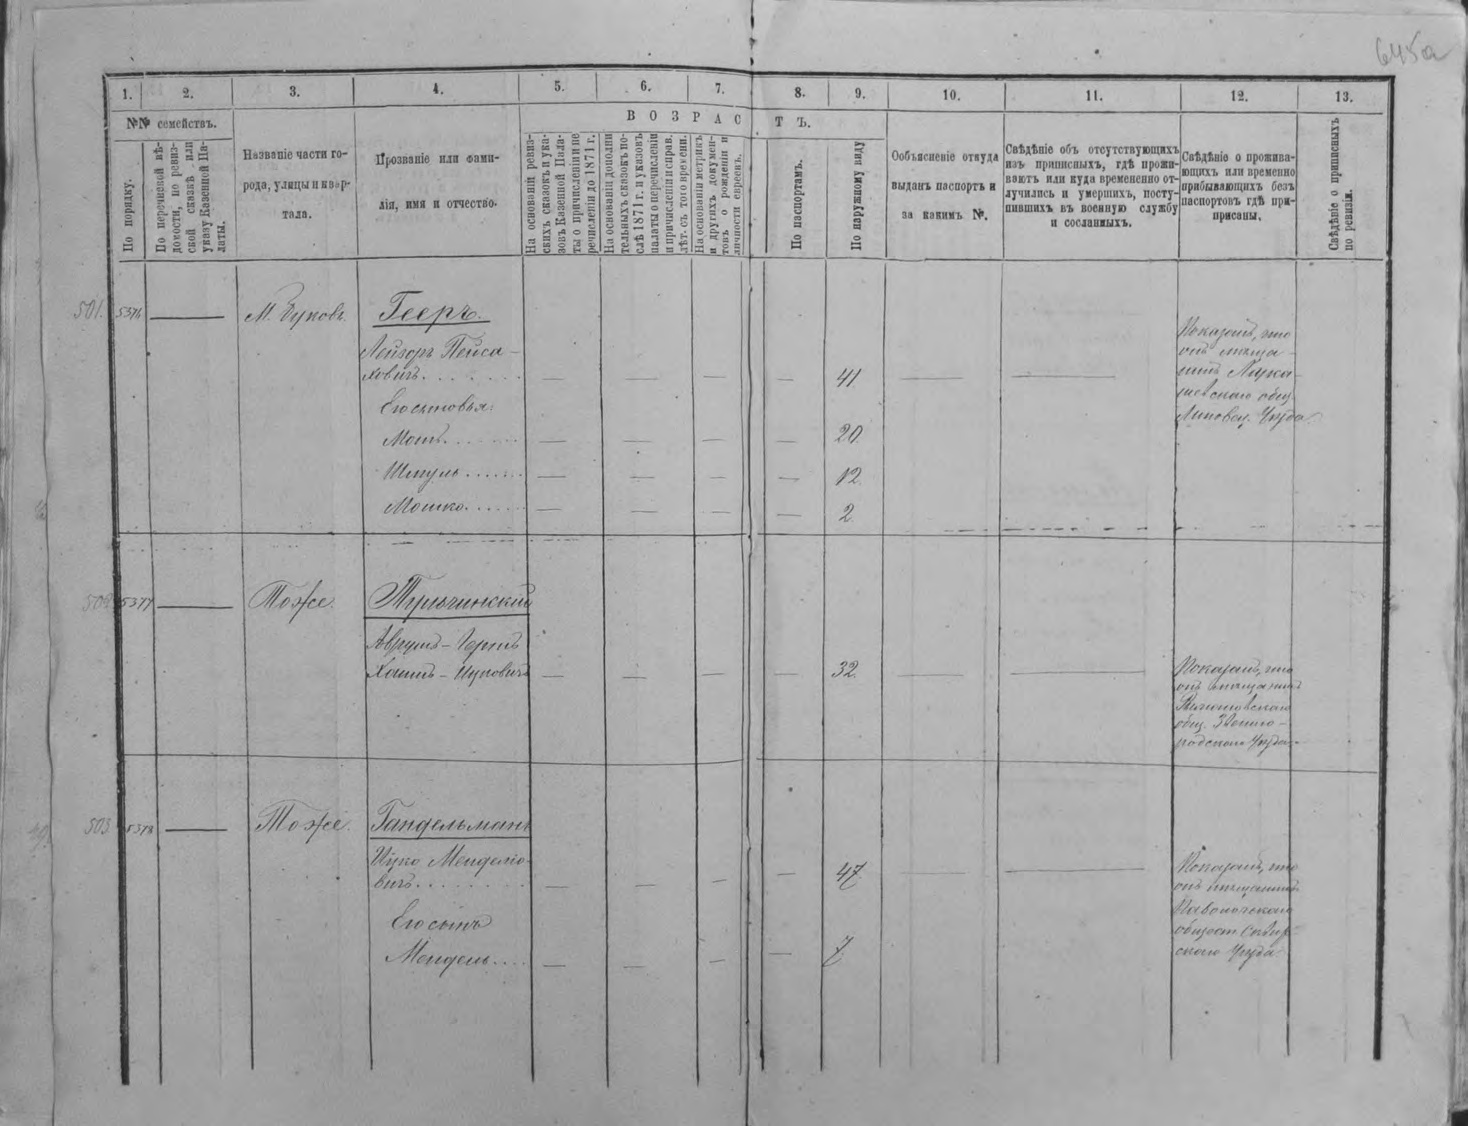 645а
1. 2. 3. 4. 5. 6. 7. 8. 9. 10. 11. 12. 13.
№№ семействъ.
По порядку.
По перечневой вѣ-
домости, по ревиз-
ской сказкѣ или
указу Казенной Па-
латы.
Названіе части го-
рода, улицы и квар-
тала.
Прозваніе или фами-
лія, имя и отчество.
ВОЗРАСТЪ.
На основаніи ревиз-
скихъ сказокъ и ука-
зовъ Казенной Пала-
ты о причисленіи пе
речисленіи до 1871 г.
На основаніи дополни
тельныхъ сказокъ по-
слѣ 1871 г. и указовъ
палаты о перечисленіи
и причисленіи и прав.
лѣт. съ того времени.
На основаніи метрикъ
и другихъ докумен-
товъ о рожденіи и
личности евреевъ.
По паспортамъ.
По наружному виду
Ообъясненіе откуда
выданъ паспортъ и
за какимъ №.
Свѣдѣніе объ отсутствующихъ
изъ приписныхъ, гдѣ прожи-
ваютъ или куда временно от-
лучились и умершихъ, посту-
пившихъ въ военную службу
и сосланныхъ.
Свѣдѣніе о прожива-
ющихъ или временно
прибывающихъ безъ
паспортовъ гдѣ при-
писаны.
Свѣдѣніе о приписныхъ
по ревизіи.
501. 5376 М. Буковъ. Гееръ.
Лейзоръ Пейса-
ховичъ . . . . . . . — — — — 41 — —
Его сыновья:
— — — — 20
Шмуль . . . . . . — — — — 12
Мошко . . . . . . — — — — 2
Показалъ, что
онъ мѣща-
нинъ Лука-
шевскаго общ.
Липовец. Уѣзда
502 5377 Тоже. Турчинскій
Аврумъ-Гершъ
Хаимъ-Ицковичъ — — — — 32 — —
Показалъ, что
онъ мѣщанинъ
общ. Звениго-
родскаго Уѣзда
503 5378 Тоже. Гандельманъ
Ицко Менделю-
вичъ . . . . . . . — — — — 47 — —
Его сынъ
Мендель . . . . — — — — 7
Показалъ, что
онъ мѣщанинъ
Паволочскаго
общест. Сквир-
скаго Уѣзда